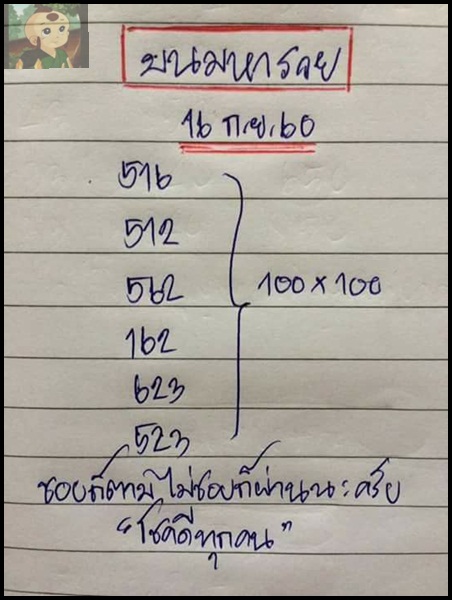 ขนมหารวย
16 ก.ย. 60
516
512
562
100 x 100
162
623
523
ชอบก็ตาม ไม่ชอบก็ผ่านนะครับ
"โชคดีทุกคน"